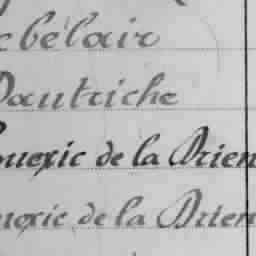 bélair
Dautriche
ouexic de la Drien
uexic de la Drien